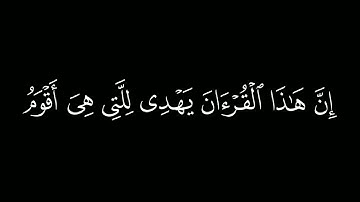 إِنَّ هَٰذَا ٱلْقُرْءَانَ يَهْدِى لِلَّتِى هِىَ أَقْوَمُ